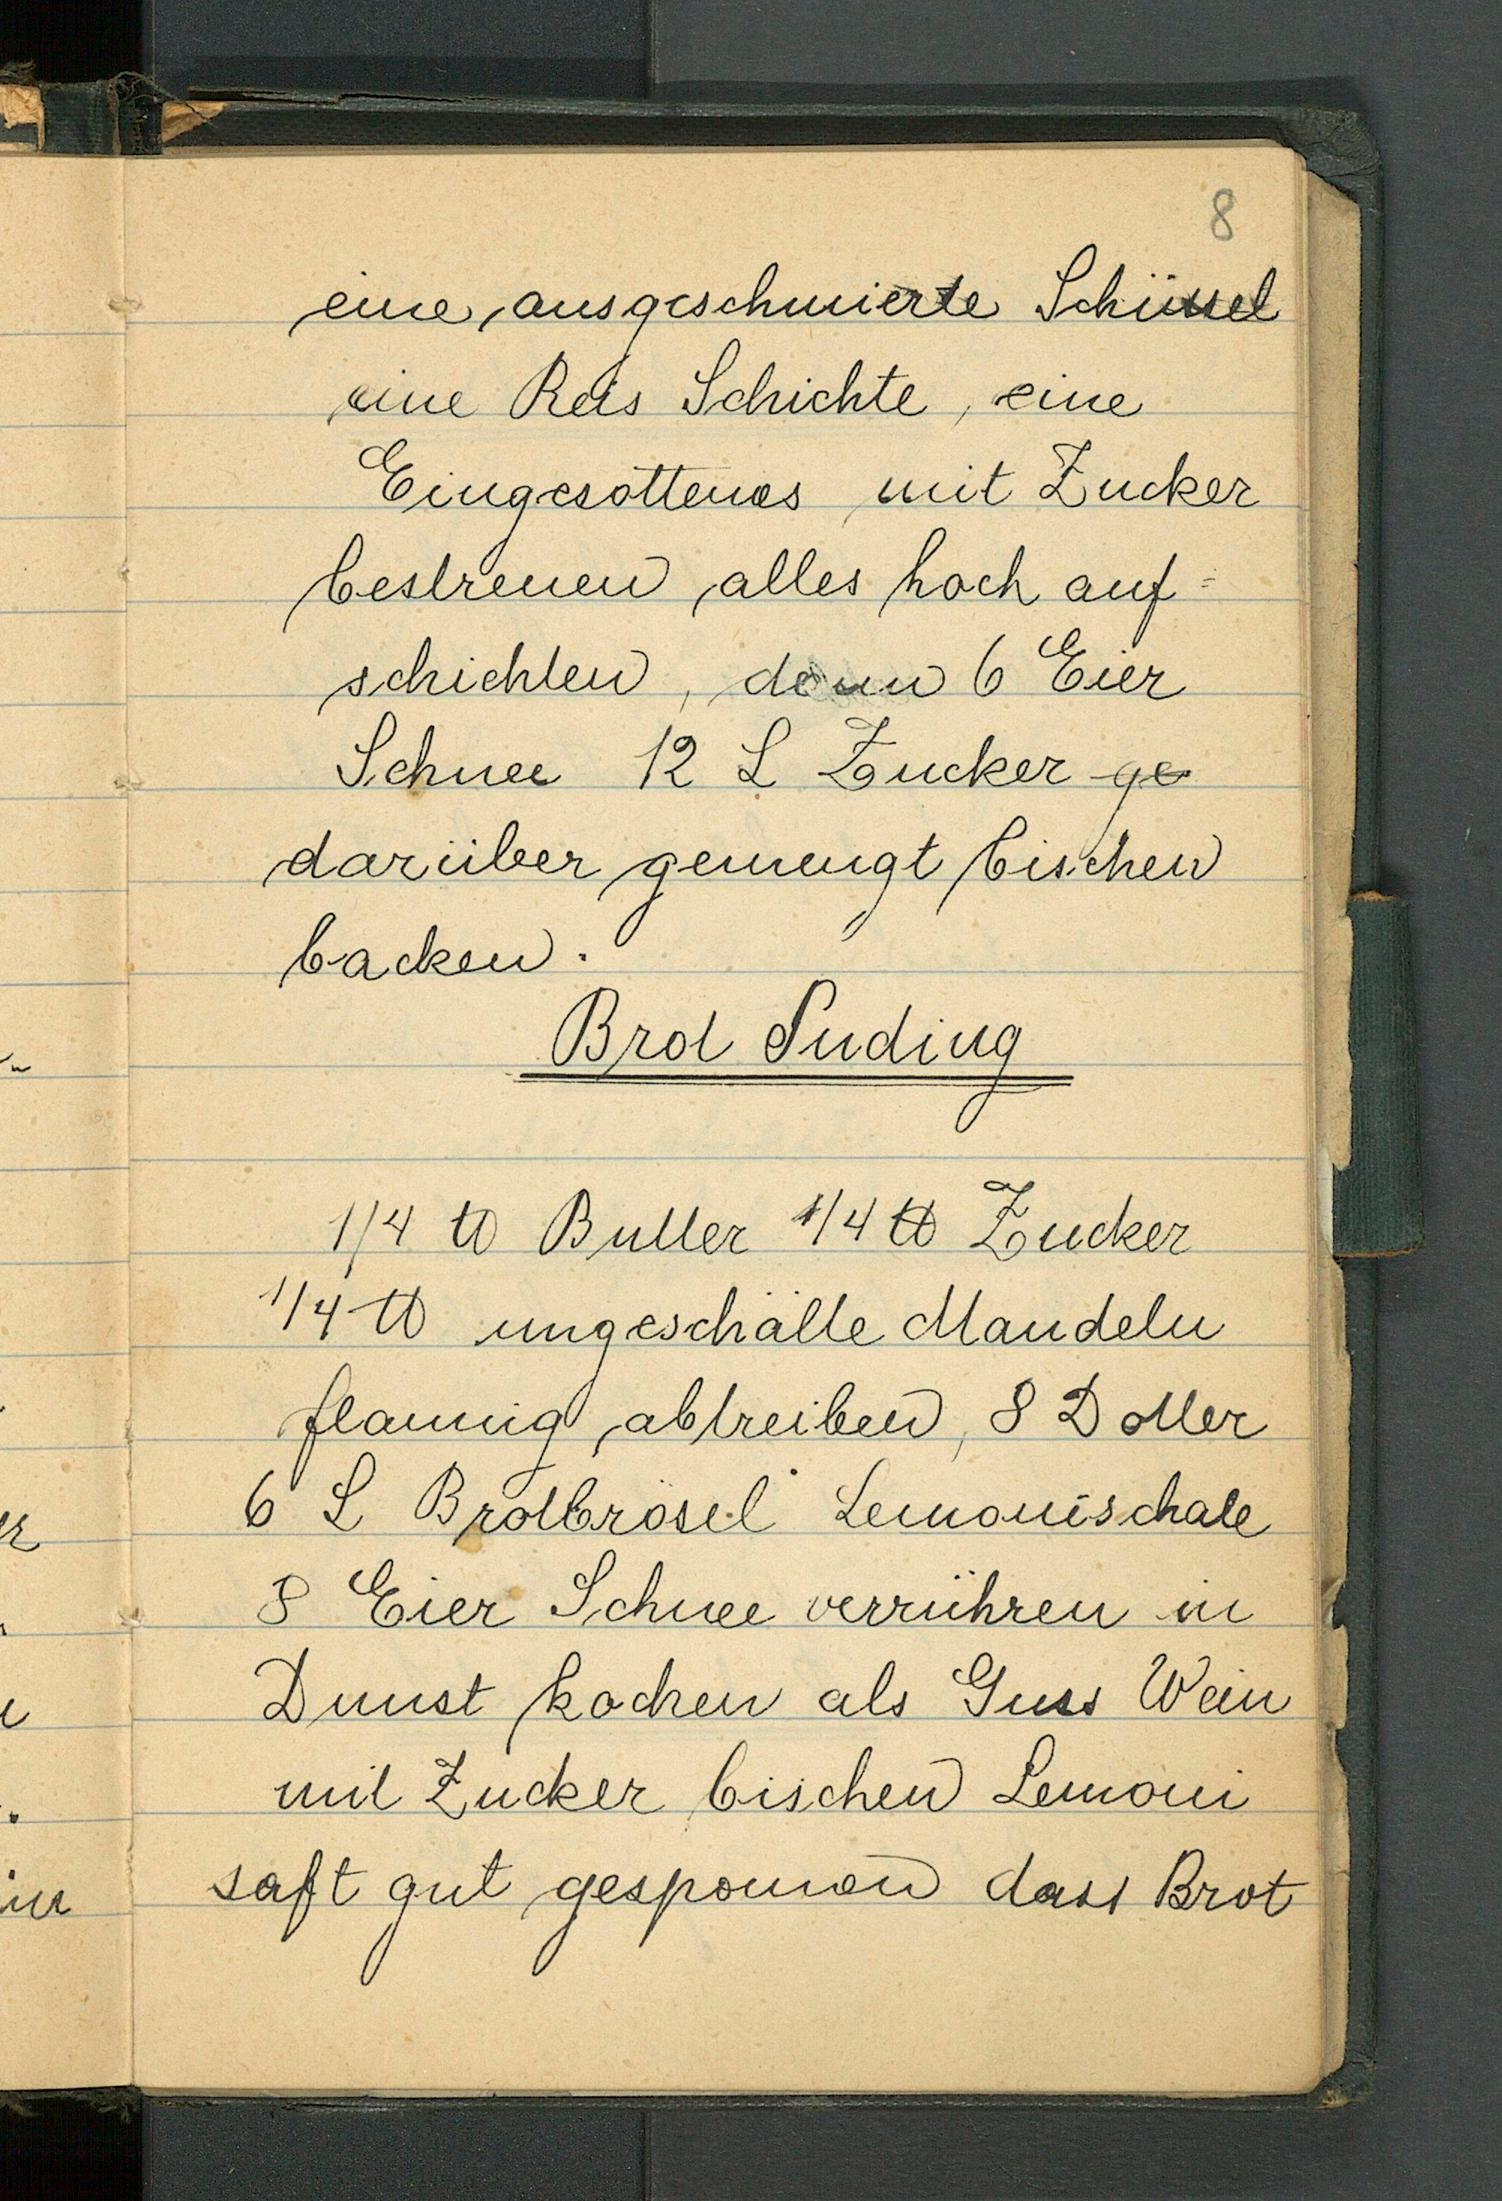 8
eine ausgeschmierte Schüssel
eine Reis Schichte, eine
Eingesottenes mit Zucker
bestreuen, alles hoch auf=
schichten, dann 6 Eier
Schnee 12 L Zucker ge
darüber gemengt bischen
backen.
Brot Puding
1/4 ℔ Butter 1/4 ℔ Zucker
1/4 ℔ ungeschälte Mandeln
flaumig abtreiben, 8 Dotter
6 L Brotbrösel Lemonischale
8 Eier Schnee verrühren in
Dunst kochen als Guss Wein
mit Zucker bischen Lemoni
saft gut gesponnen dass Brot